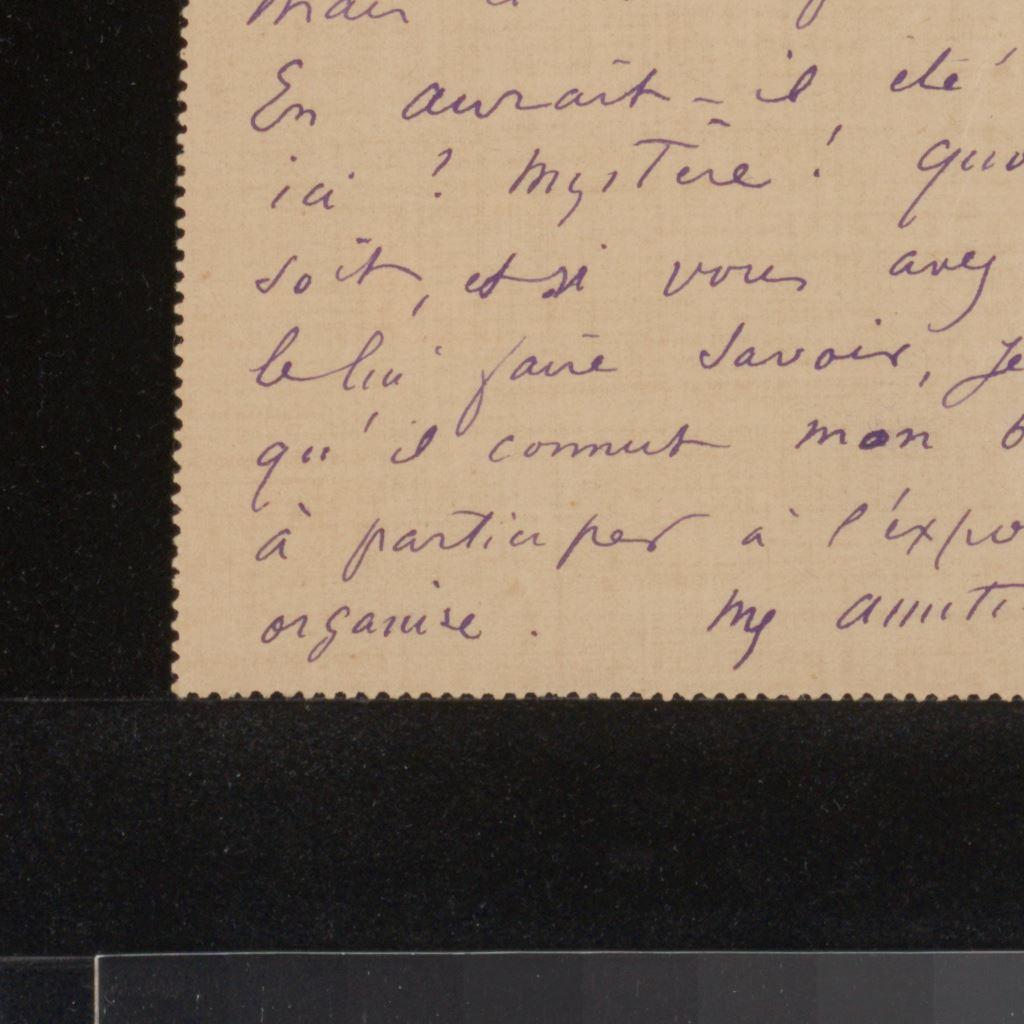 mais
En aurait-il été
ici ? Mystère !
soit, et si vous avez
le lui faire savoir, je
qu'il connut mon
à participer à l'expo
organise. Mes amiti